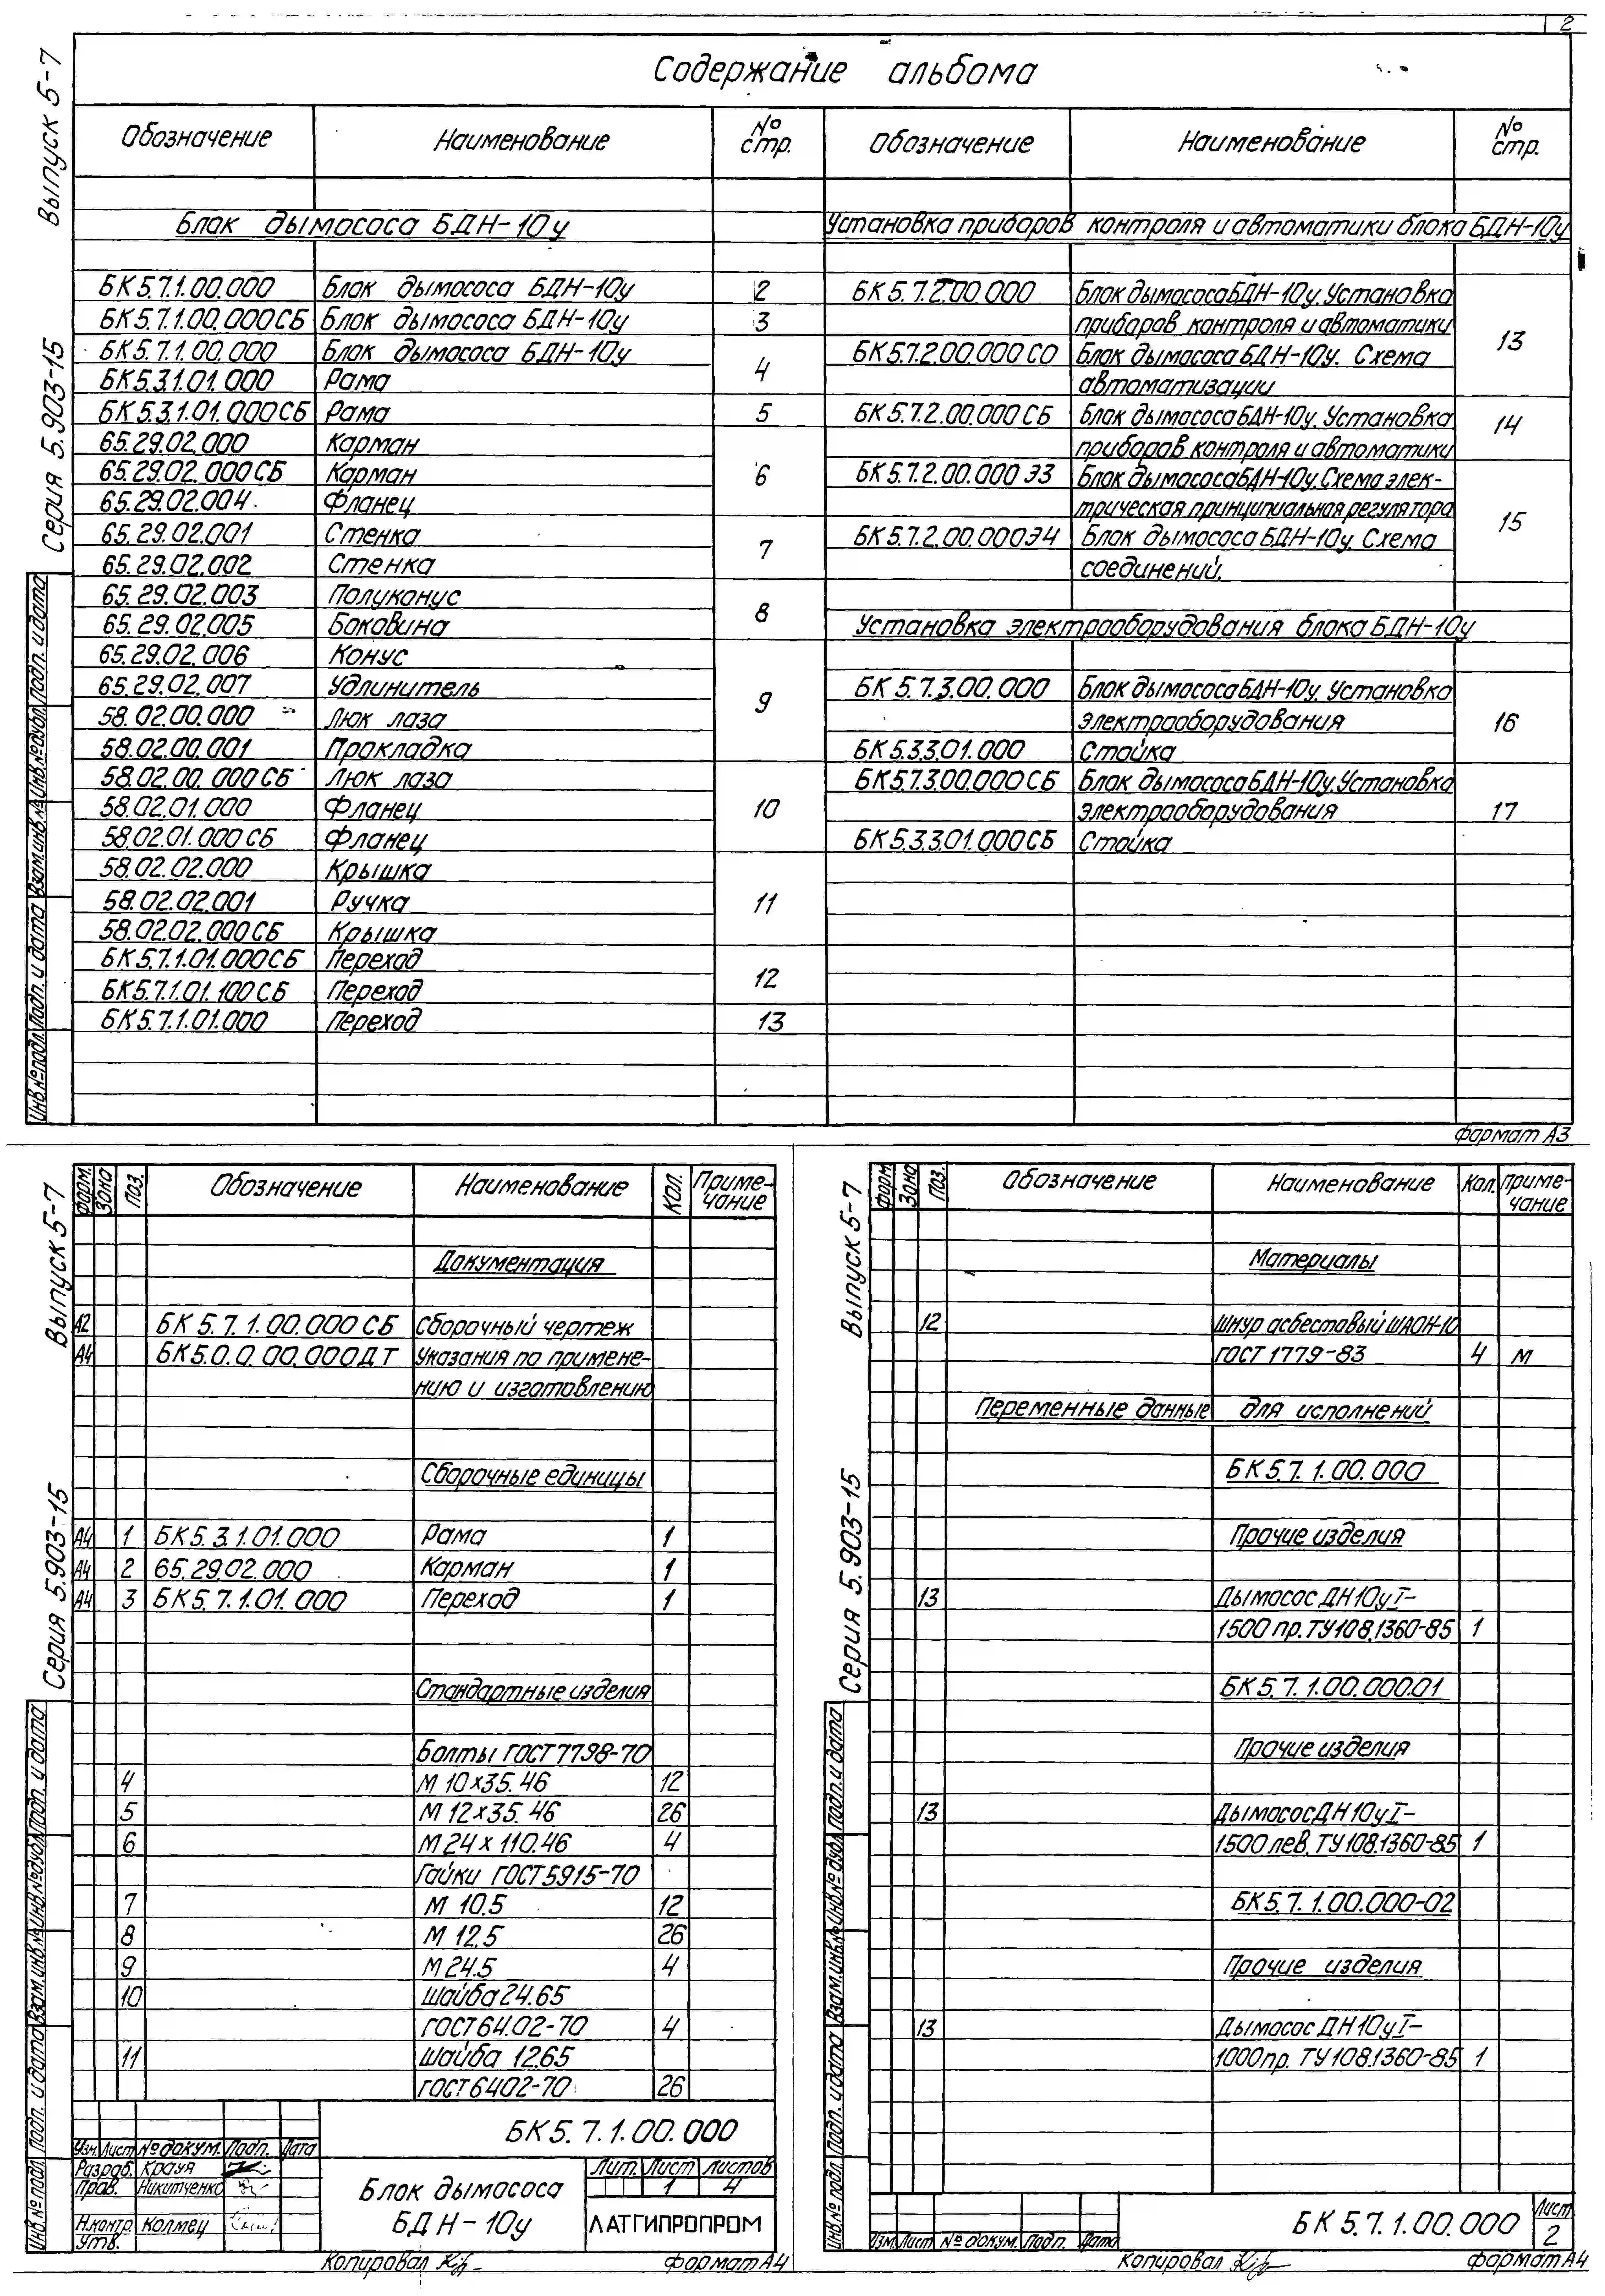 2
Содержание альбома
Обозначение Наименование № стр. Обозначение Наименование № стр.
Блок дымососа БДН-10у
БК5.7.1.00.000 Блок дымососа БДН-10у 2
БК5.7.1.00.000СБ Блок дымососа БДН-10у 3
БК5.7.1.00.000 Блок дымососа БДН-10у 4
БК5.3.1.01.000 Рама
БК5.3.1.01.000СБ Рама 5
65.29.02.000 Карман
65.29.02.000СБ Карман 6
65.29.02.004 Фланец
65.29.02.001 Стенка 7
65.29.02.002 Стенка
65.29.02.003 Полуконус 8
65.29.02.005 Боковина
65.29.02.006 Конус
65.29.02.007 Удлинитель 9
58.02.00.000 Люк лаза
58.02.00.001 Прокладка
58.02.00.000СБ Люк лаза
58.02.01.000 Фланец 10
58.02.01.000СБ Фланец
58.02.02.000 Крышка
58.02.02.001 Ручка 11
58.02.02.000СБ Крышка
БК5.7.1.01.000СБ Переход
БК5.7.1.01.100СБ Переход 12
БК5.7.1.01.000 Переход 13
Установка приборов контроля и автоматики блока БДН-10у
БК5.7.2.00.000 Блок дымососа БДН-10у. Установка
приборов контроля и автоматики 13
БК5.7.2.00.000СО Блок дымососа БДН-10у. Схема
автоматизации
БК5.7.2.00.000СБ Блок дымососа БДН-10у. Установка 14
приборов контроля и автоматики
БК5.7.2.00.000Э3 Блок дымососа БДН-10у. Схема элек-
трическая принципиальная регулятора 15
БК5.7.2.00.000Э4 Блок дымососа БДН-10у. Схема
соединений.
Установка электрооборудования блока БДН-10у
БК5.7.3.00.000 Блок дымососа БДН-10у. Установка
электрооборудования 16
БК5.3.3.01.000 Стойка
БК5.7.3.00.000СБ Блок дымососа БДН-10у. Установка
электрооборудования 17
БК5.3.3.01.000СБ Стойка
Серия 5.903-15 Выпуск 5-7
Инв.№подл. Подп. и дата Взам.инв.№ Инв.№дубл. Подп. и дата
Формат А3
Форм. Зона Поз. Обозначение Наименование Кол. Приме-
чание
Документация
А2 БК5.7.1.00.000СБ Сборочный чертеж
А4 БК5.0.0.00.000ДТ Указания по примене-
нию и изготовлению
Сборочные единицы
А4 1 БК5.3.1.01.000 Рама 1
А4 2 65.29.02.000 Карман 1
А4 3 БК5.7.1.01.000 Переход 1
Стандартные изделия
Болты ГОСТ7798-70
4 М10х35.46 12
5 М12х35.46 26
6 М24х110.46 4
Гайки ГОСТ5915-70
7 М10.5 12
8 М12.5 26
9 М24.5 4
10 Шайба 24.65
ГОСТ64.02-70 4
11 Шайба 12.65
ГОСТ6402-70 26
БК5.7.1.00.000
Изм. Лист № докум. Подп. Дата
Разраб. Крауя
Пров. Никитченко
Н.контр. Колмец
Утв.
Блок дымососа
БДН-10у
Лит. Лист Листов
1 4
ЛАТГИПРОПРОМ
Копировал Формат А4
Серия 5.903-15 Выпуск 5-7
Инв.№подл. Подп. и дата Взам.инв.№ Инв.№дубл. Подп. и дата
Форм. Зона Поз. Обозначение Наименование Кол. Приме-
чание
Материалы
12 Шнур асбестовый ШАОН-10
ГОСТ 1779-83 4 м
Переменные данные для исполнений
БК5.7.1.00.000
Прочие изделия
13 Дымосос ДН10уI-
1500 пр. ТУ108.1360-85 1
БК5.7.1.00.000.01
Прочие изделия
13 Дымосос ДН10уI-
1500 лев. ТУ108.1360-85 1
БК5.7.1.00.000-02
Прочие изделия
13 Дымосос ДН10уI-
1000пр. ТУ108.1360-85 1
Серия 5.903-15 Выпуск 5-7
Инв.№подл. Подп. и дата Взам.инв.№ Инв.№дубл. Подп. и дата
Изм. Лист № докум. Подп. Дата
БК5.7.1.00.000
Лист
2
Копировал Формат А4